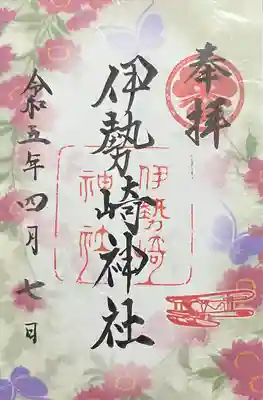 奉拝
伊勢崎神社
伊勢崎
神社
令和五年四月七日